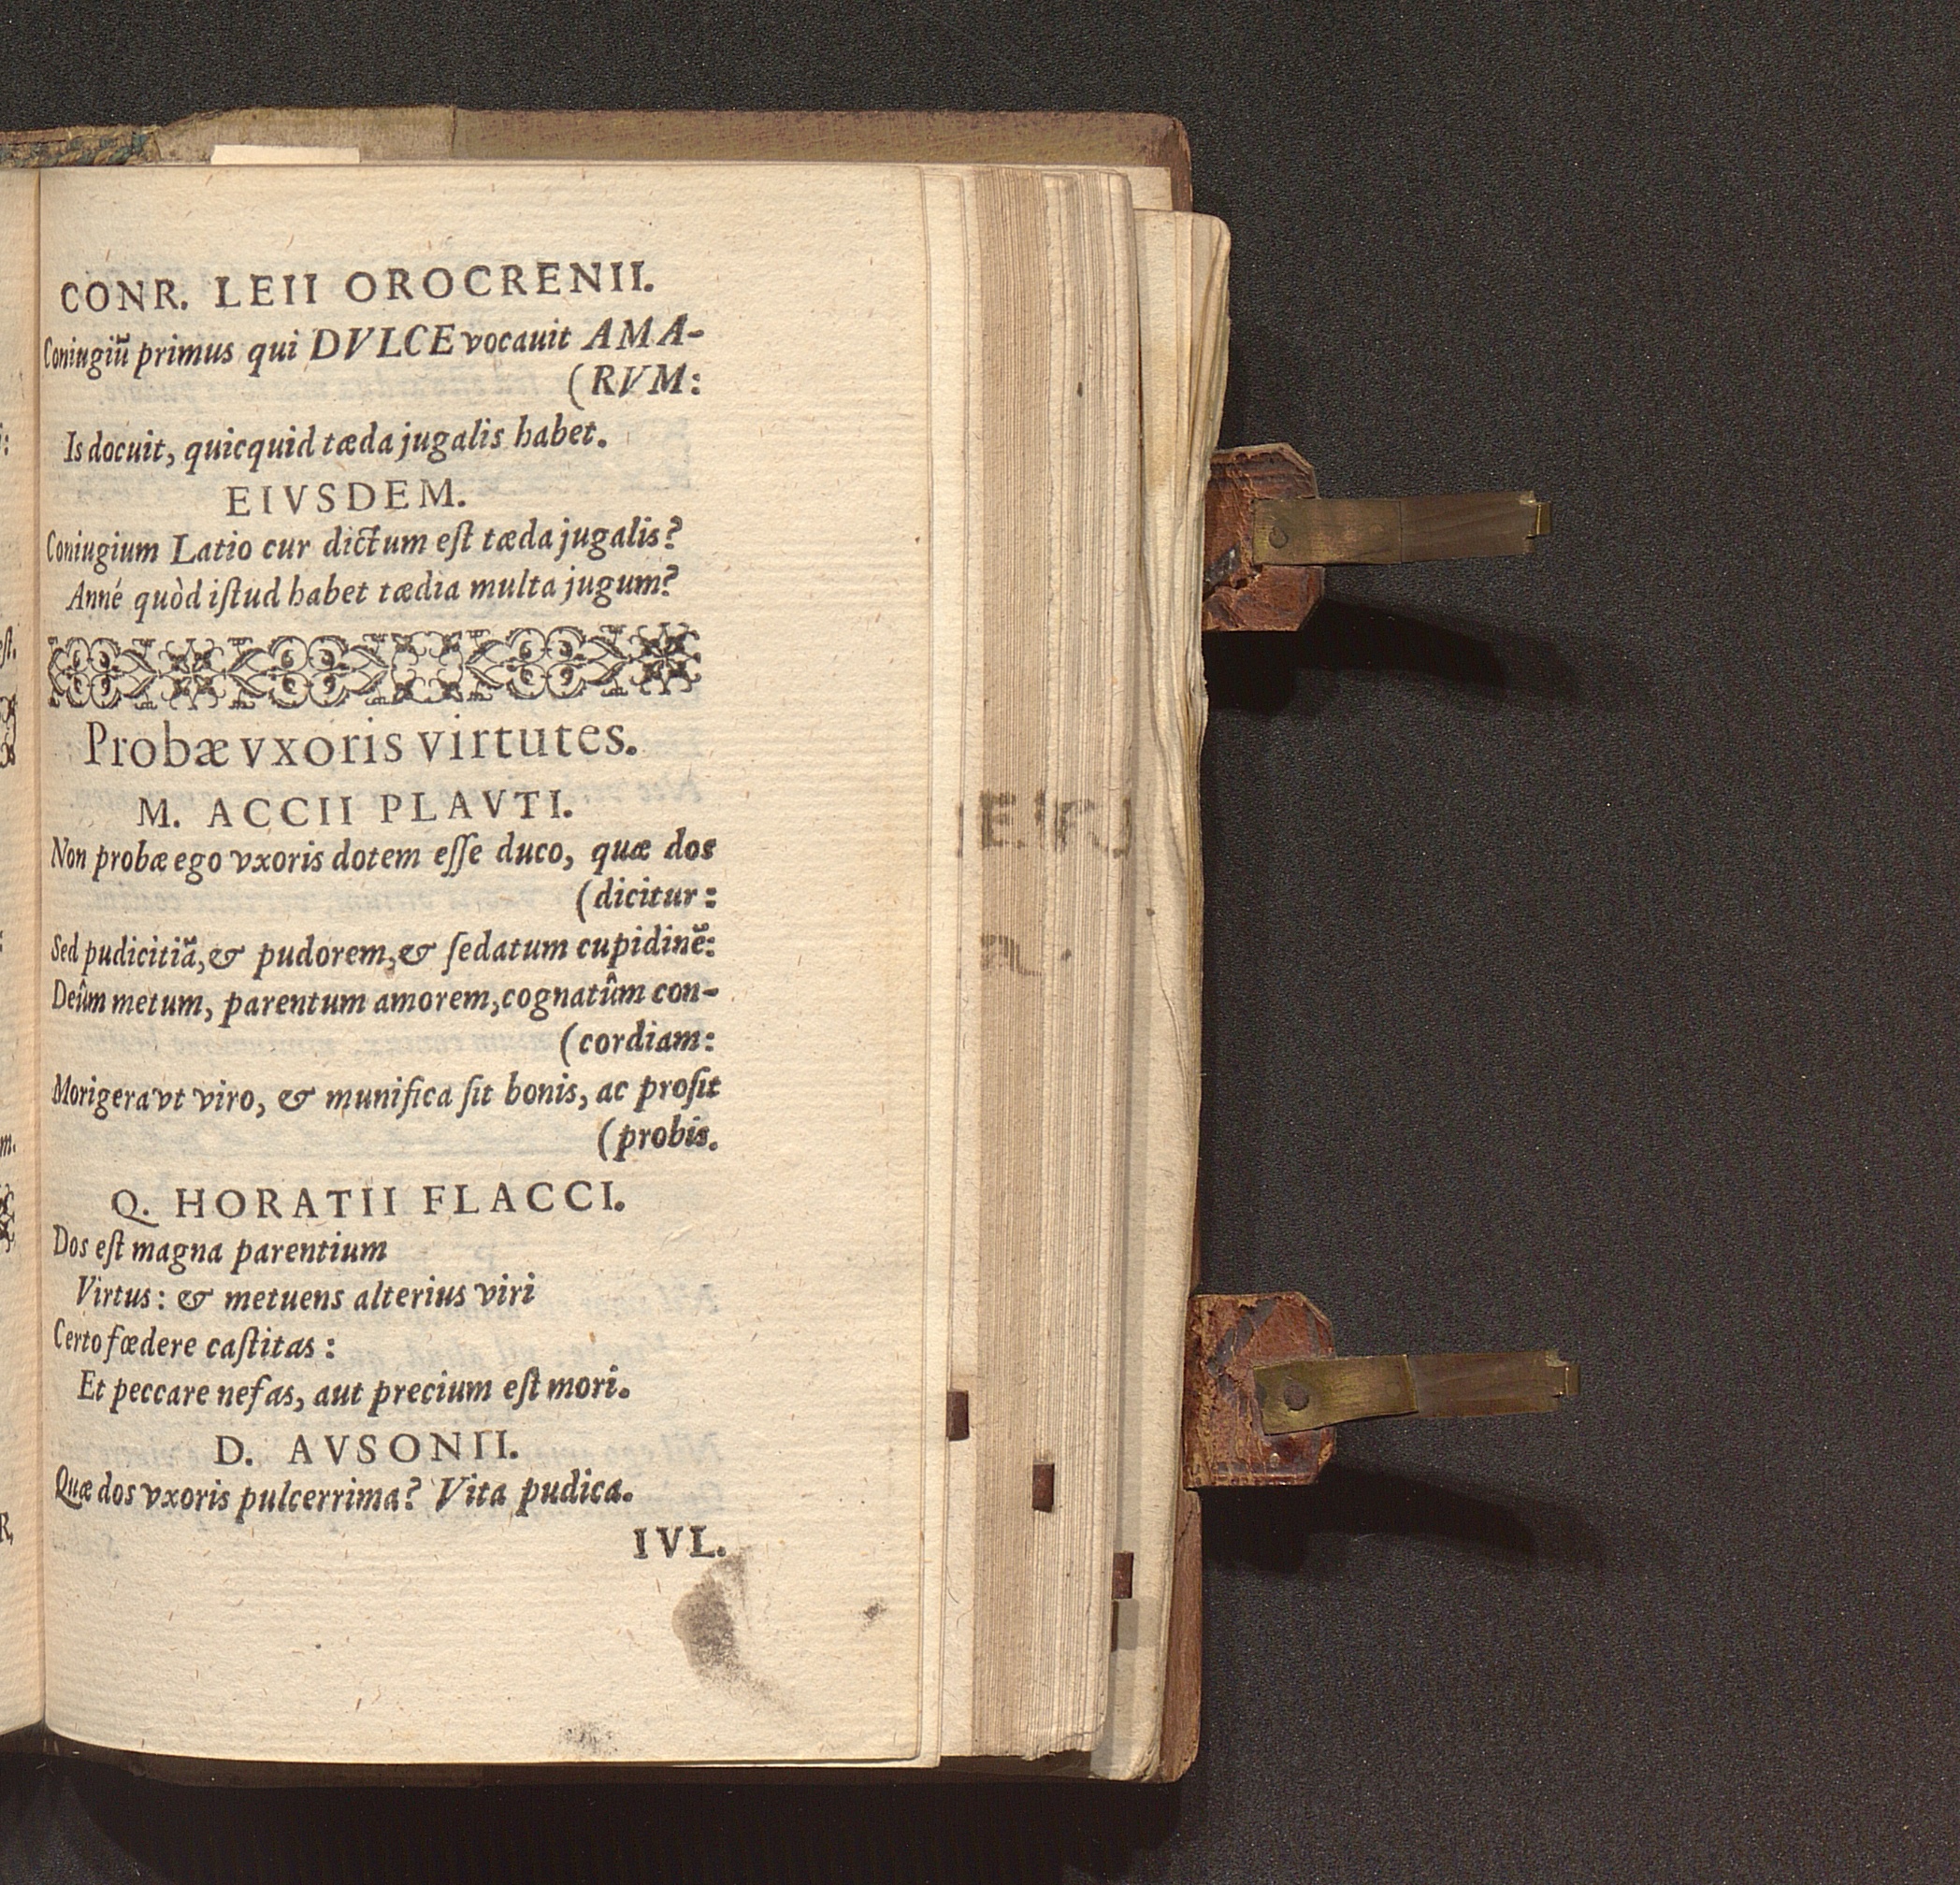 CONR. LEII OROCRENII.
Coniugiū primus qui DVLCE vocauit AMA-
(RVM:
Is docuit, quicquid tæda jugalis habet.
EIVSDEM.
Coniugium Latio cur dictum eſt tæda jugalis?
Anné quòd iſtud habet tædia multa jugum?
Probæ vxoris virtutes.
M. ACCII PLAVTI.
Non probæ ego vxoris dotem eſſe duco, quæ dos
(dicitur:
Sed pudicitiā, & pudorem, & ſedatum cupidinē:
Deûm metum, parentum amorem, cognatûm con-
(cordiam:
Morigera vt viro, & munifica ſit bonis, ac proſit
(probis.
Q. HORATII FLACCI.
Dos eſt magna parentium
Virtus: & metuens alterius viri
Certo fœdere caſtitas:
Et peccare nefas, aut precium eſt mori.
D. AVSONII.
Quæ dos vxoris pulcerrima? Vita pudica.
IVL.